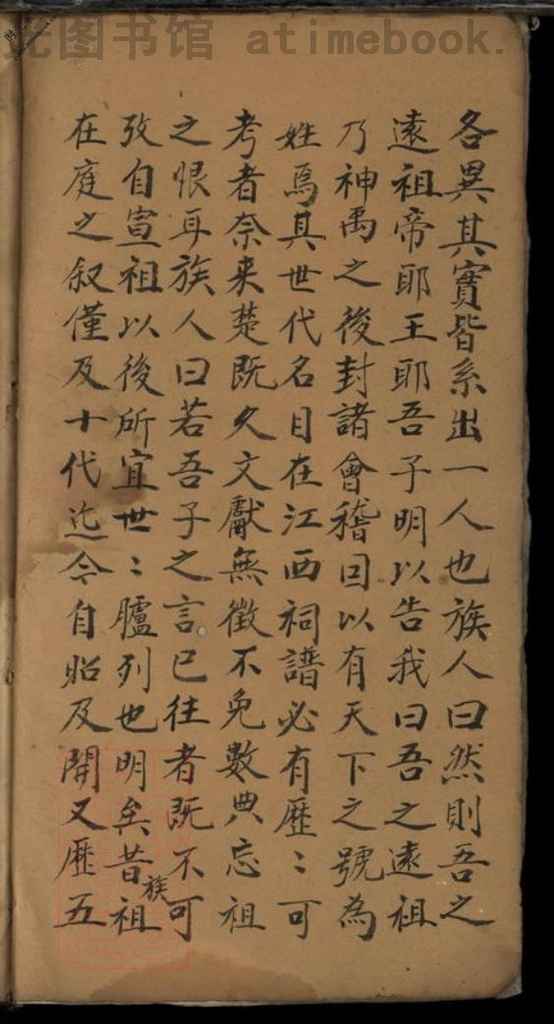 图书馆 atimebook.
各異其實皆系出一人也族人曰然則吾之
遠祖帝耶王耶吾子明以告我曰吾之遠祖
乃神禹之後封諸會稽因以有天下之號為
姓焉其世代名目在江西祠譜必有歷〻可
考者奈来楚既久文獻無徵不免數典忘祖
之恨耳族人曰若吾子之言已往者既不可
攷自宣祖以後所宜世〻臚列也明矣昔族祖
在庭之叙僅及十代迄今自昭及開又歷五